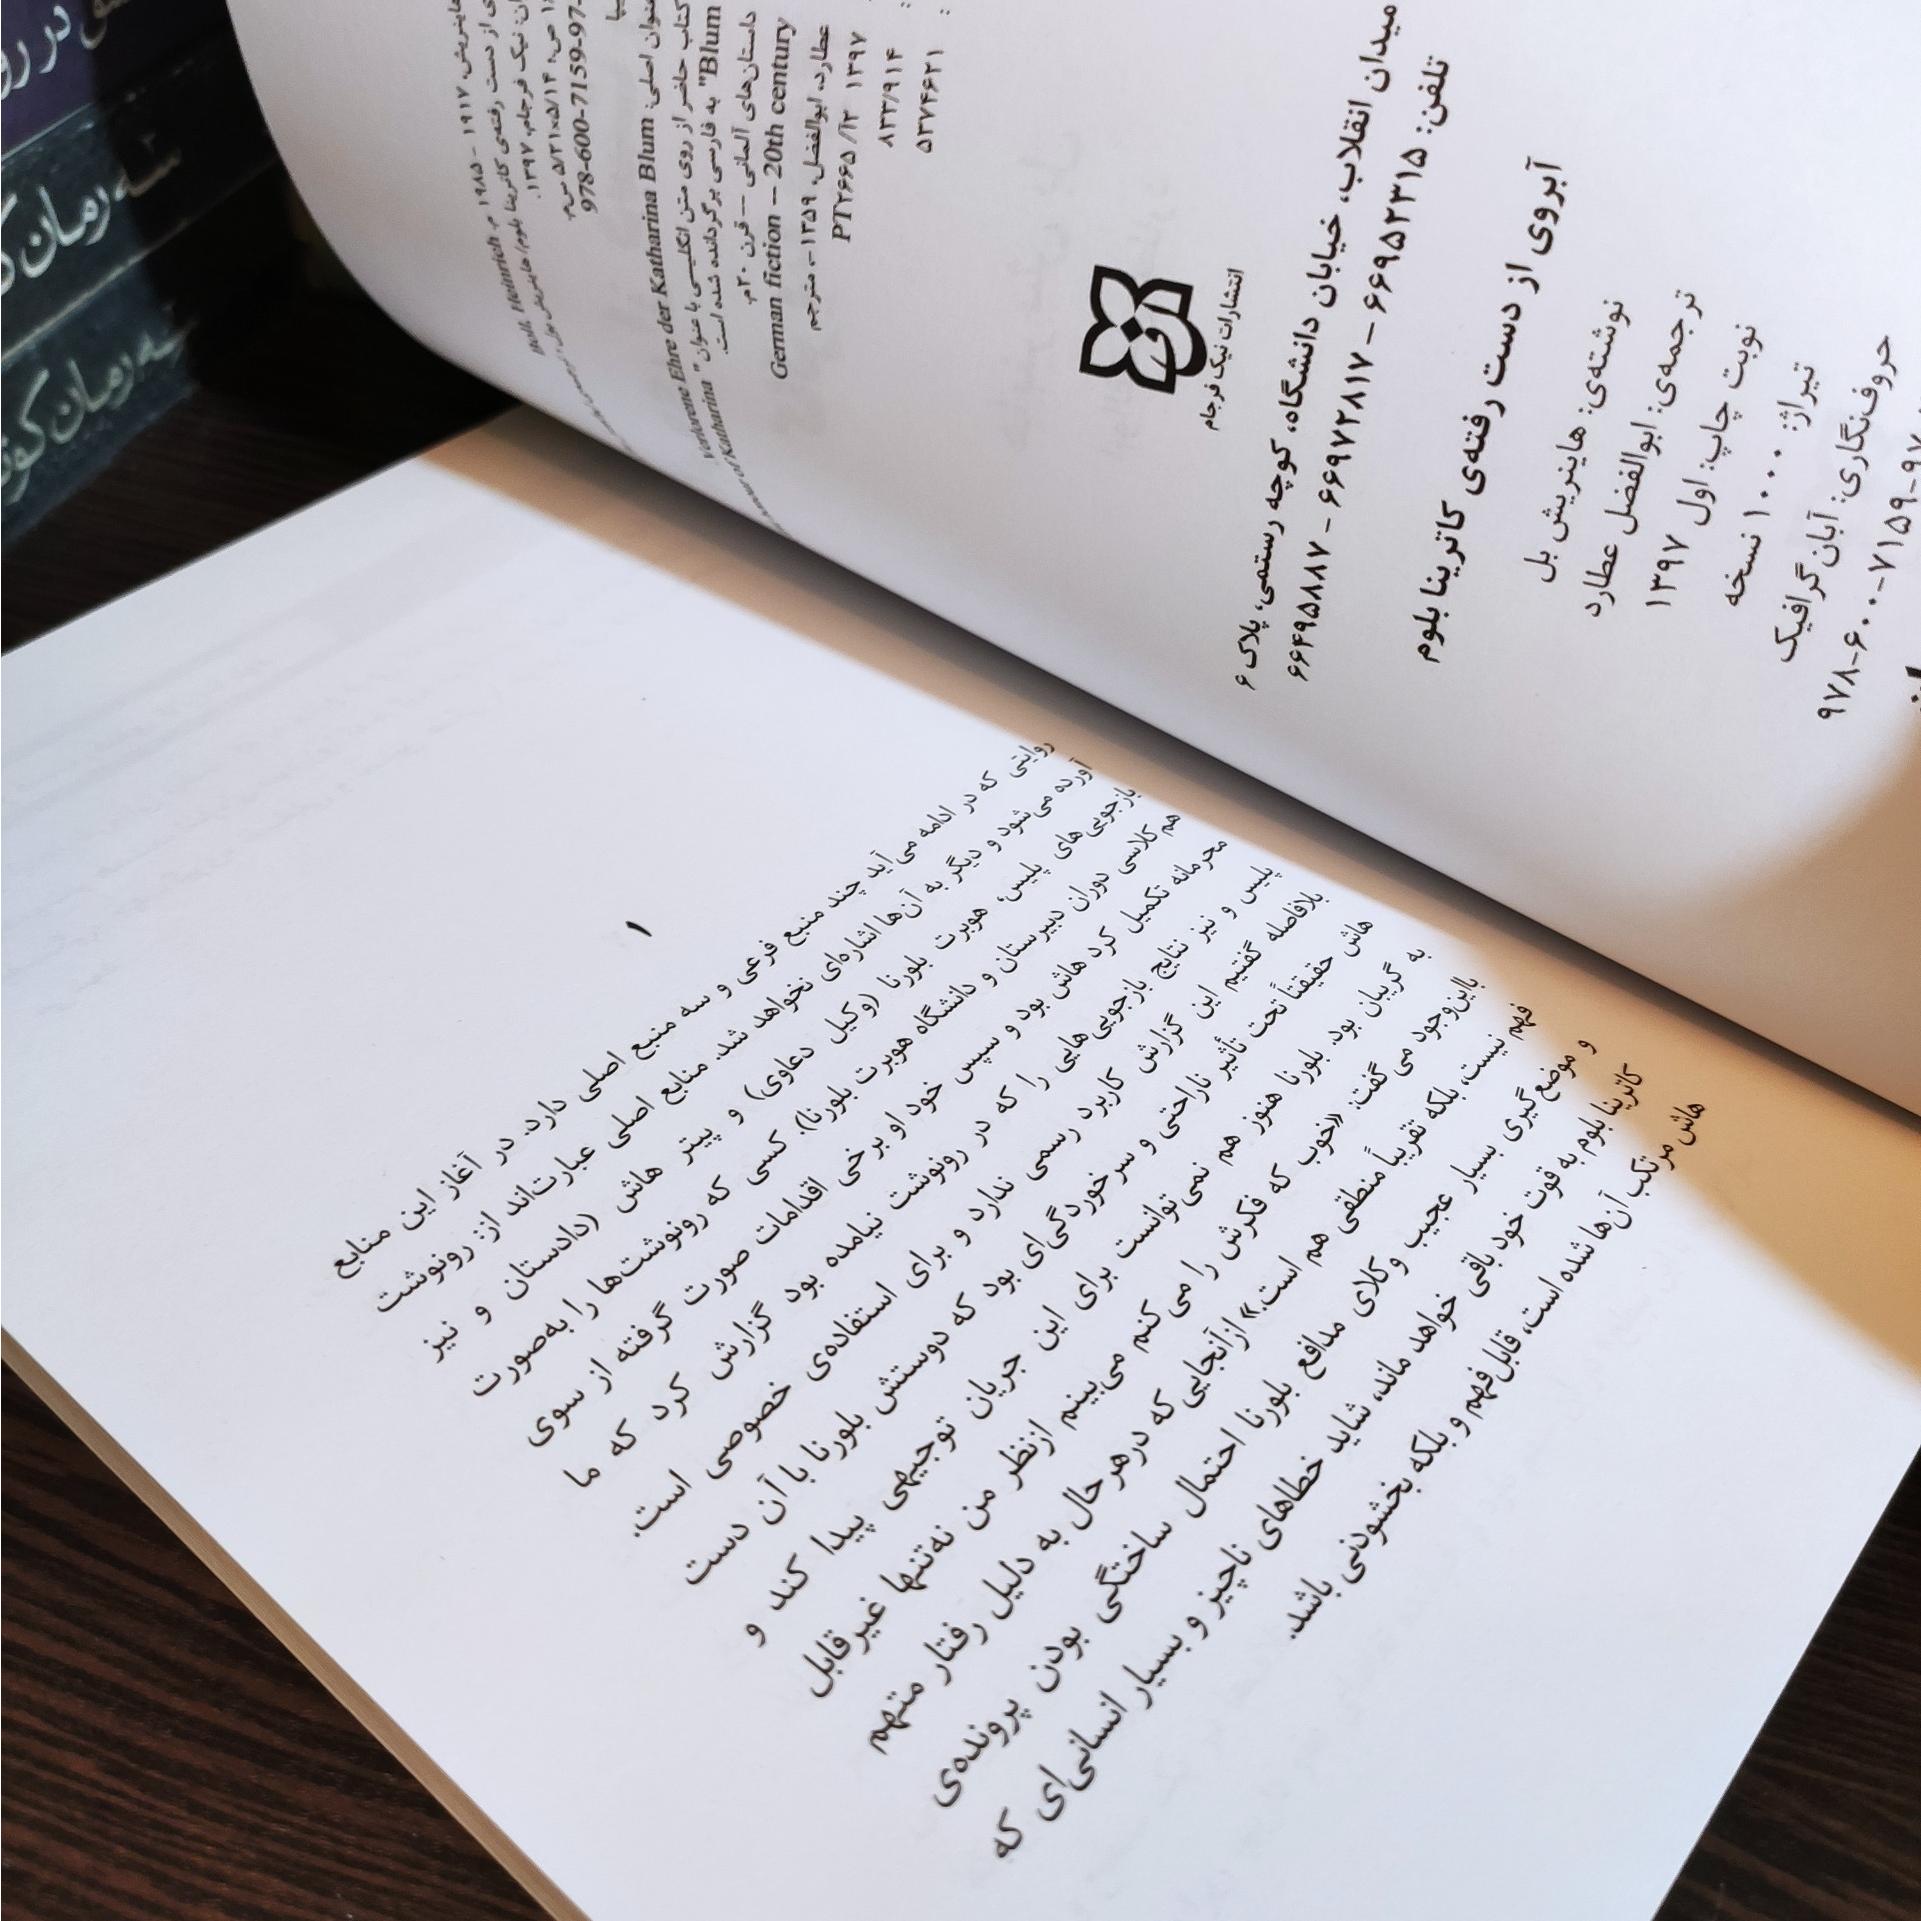 هاینریش، ۱۹۱۷ - ۱۹۸۵ م.
Böll, Heinrich
از دست رفته‌ی کاترینا بلوم/ هاینریش بل؛
نیک فرجام، ۱۳۹۷.
۱۴/۵×۲۱/۵ س‌م.
978-600-7159-97-
فیپا
عنوان اصلی: Verlorene Ehre der Katharina Blum
کتاب حاضر از روی متن انگلیسی با عنوان "
honor of Katharina Blum" به فارسی برگردانده شده است.
داستان‌های آلمانی -- قرن ۲۰م.
German fiction -- 20th century
عطارد، ابوالفضل، ۱۳۵۹-، مترجم
PT۲۶۶۵/آ۲ ۱۳۹۷
۸۳۳/۹۱۴
۵۳۷۴۶۲۱
انتشارات نیک فرجام
میدان انقلاب، خیابان دانشگاه، کوچه رستمی، پلاک ۶
تلفن: ۶۶۹۵۲۳۱۵ - ۶۶۹۷۲۸۱۷ - ۶۶۴۹۵۸۸۷
آبروی از دست رفته‌ی کاترینا بلوم
نوشته‌ی: هاینریش بل
ترجمه‌ی: ابوالفضل عطارد
نوبت چاپ: اول ۱۳۹۷
تیراژ: ۱۰۰۰ نسخه
حروف‌نگاری: آبان گرافیک
۹۷۸-۶۰۰-۷۱۵۹-۹۷
۱
روایتی که در ادامه می‌آید چند منبع فرعی و سه منبع اصلی دارد. در آغاز این منابع
آورده می‌شود و دیگر به آن‌ها اشاره‌ای نخواهد شد. منابع اصلی عبارت‌اند از: رونوشت
بازجویی‌های پلیس؛ هوبرت بلورنا (وکیل دعاوی) و پیتر هاش (دادستان و نیز
هم‌کلاسی دوران دبیرستان و دانشگاه هوبرت بلورنا). کسی که رونوشت‌ها را به‌صورت
محرمانه تکمیل کرد هاش بود و سپس خود او برخی اقدامات صورت گرفته از سوی
پلیس و نیز نتایج بازجویی هایی را که در رونوشت نیامده بود گزارش کرد که ما
بلافاصله گفتیم این گزارش کاربرد رسمی ندارد و برای استفاده‌ی خصوصی است.
هاش حقیقتاً تحت تأثیر ناراحتی و سرخوردگی‌ای بود که دوستش بلورنا با آن دست
به گریبان بود. بلورنا هنوز هم نمی‌توانست برای این جریان توجیهی پیدا کند و
بااین‌وجود می گفت: «خوب که فکرش را می کنم می‌بینم ازنظر من نه‌تنها غیرقابل
فهم نیست، بلکه تقریباً منطقی هم است.» ازآنجایی که درهرحال به دلیل رفتار متهم
و موضع‌گیری بسیار عجیب وکلای مدافع بلورنا احتمال ساختگی بودن پرونده‌ی
کاترینا بلوم به قوت خود باقی خواهد ماند، شاید خطاهای ناچیز و بسیار انسانی‌ای که
هاش مرتکب آن‌ها شده است، قابل‌فهم و بلکه بخشودنی باشد.